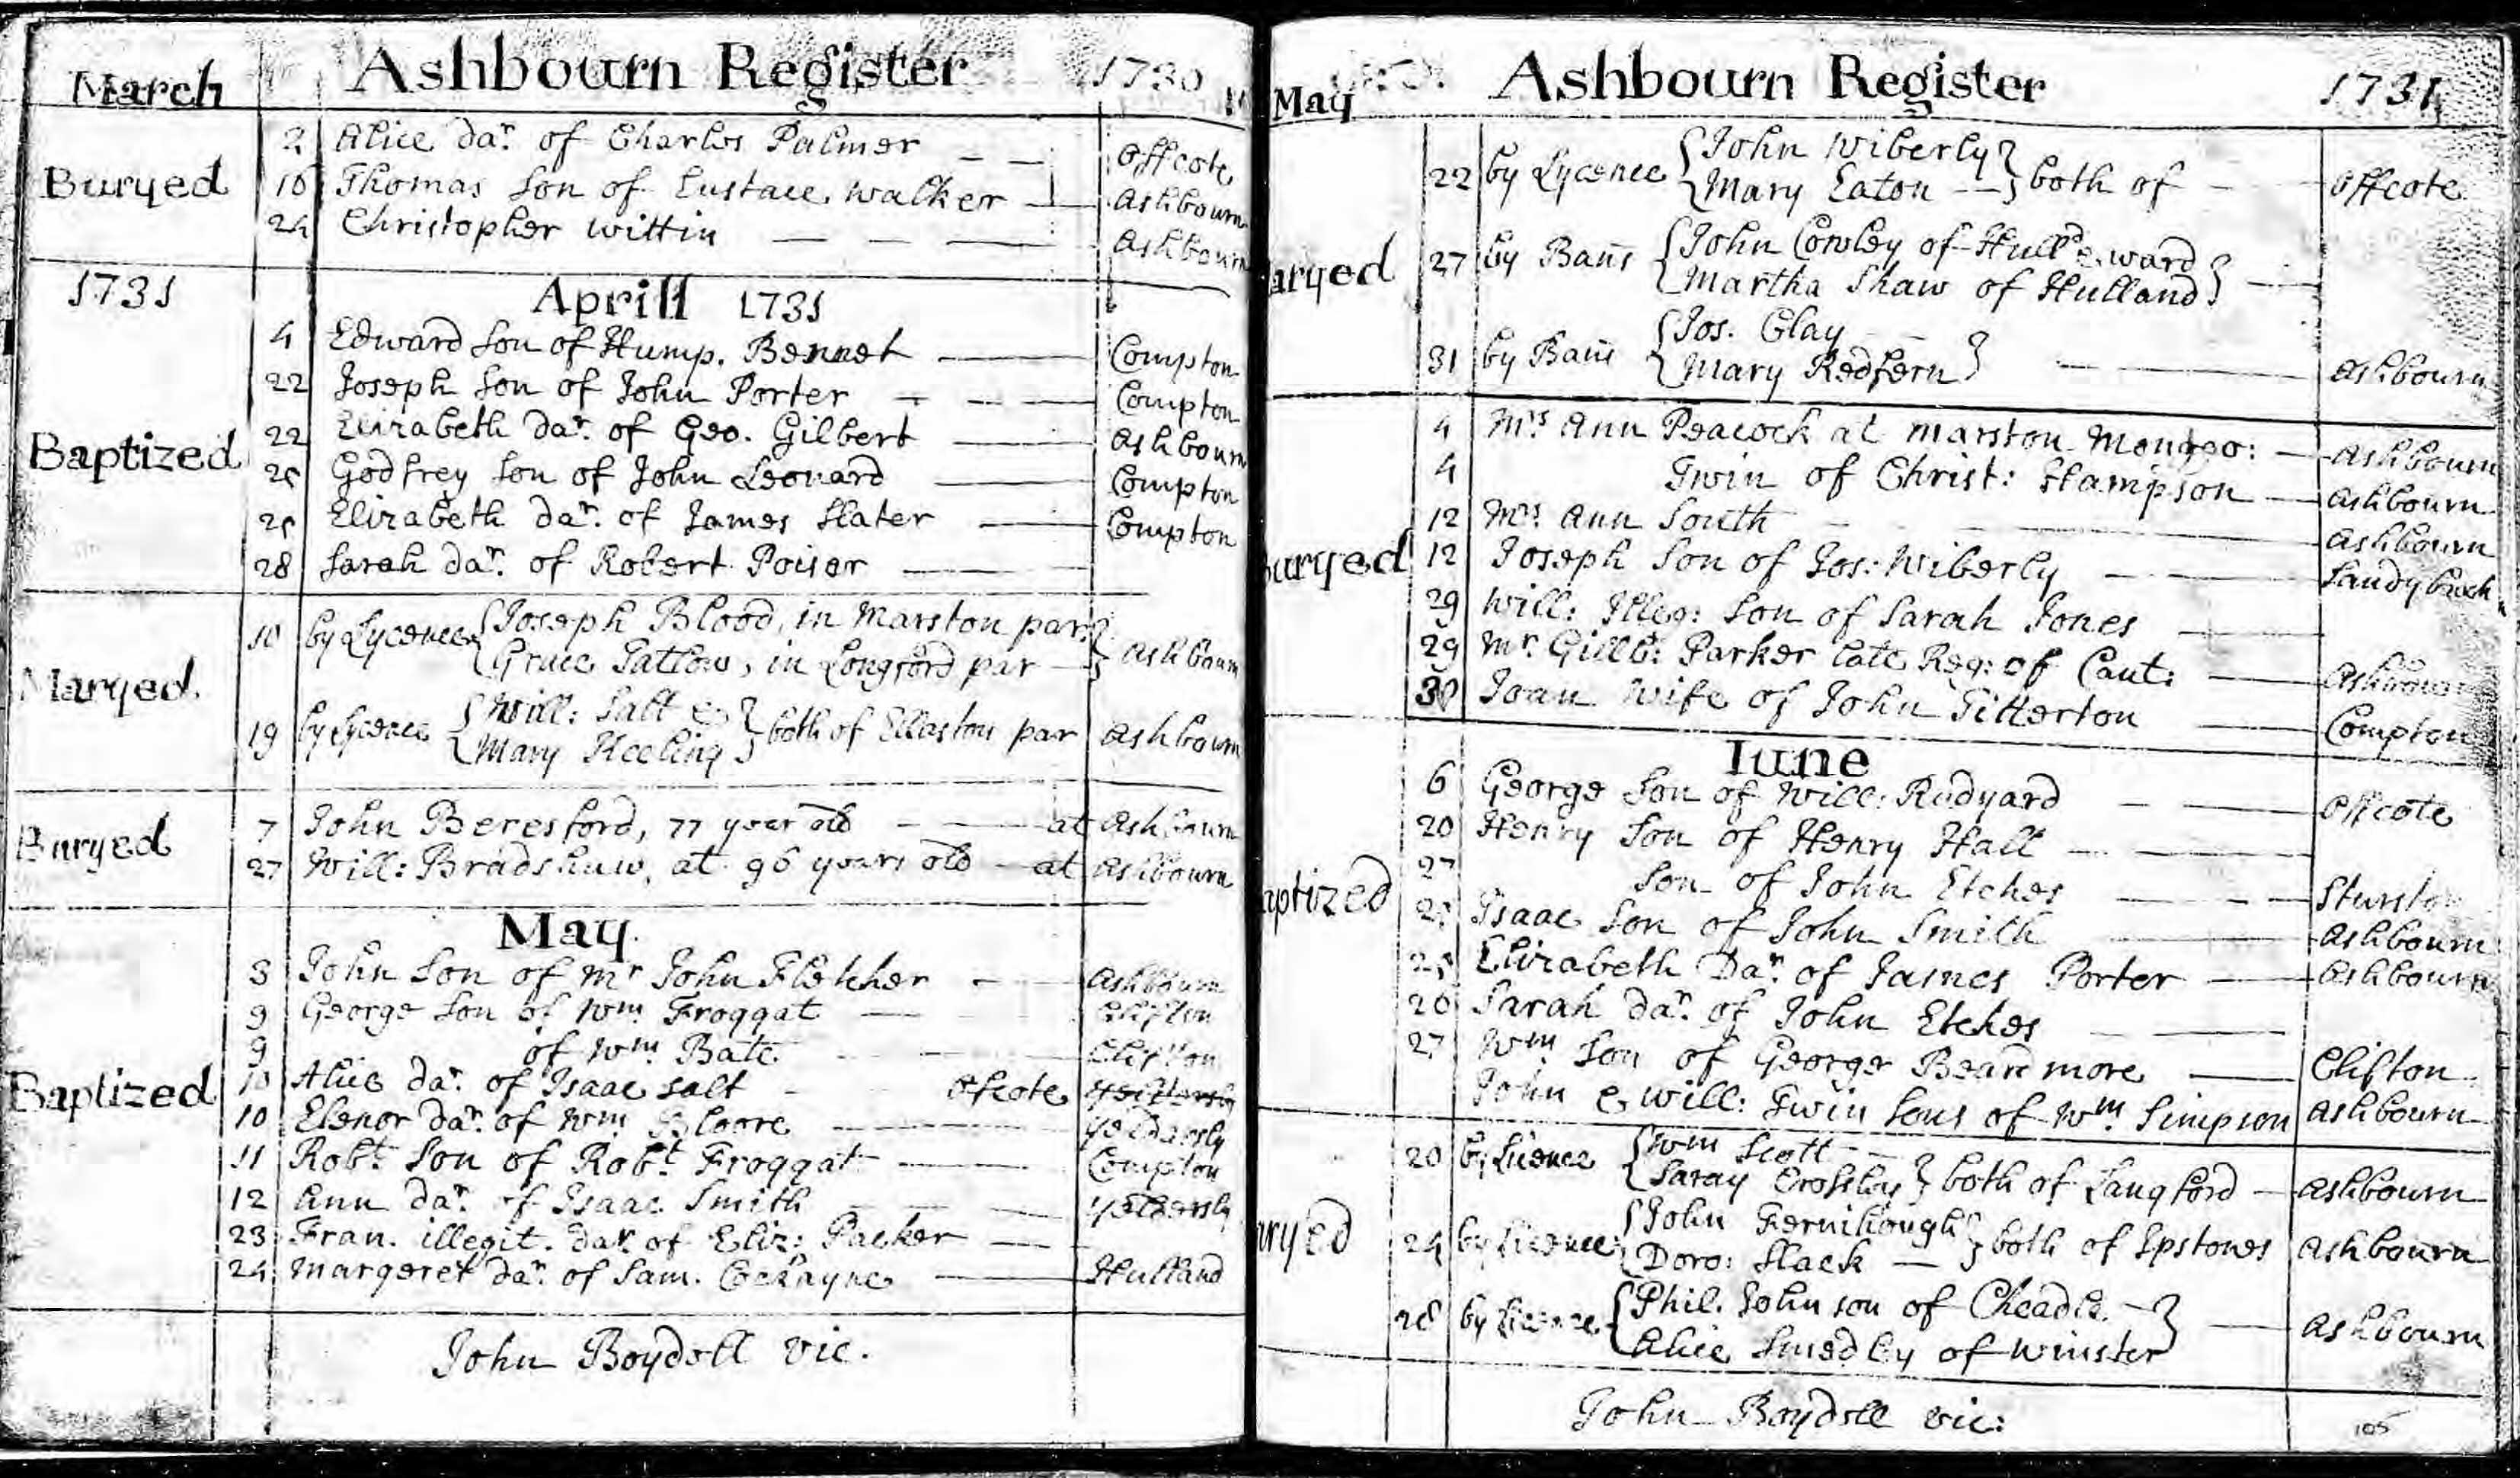 March Ashbourn Register 1730
Buryed
2 Alice dar. of Charles Palmer Offcote
16 Thomas Son of Eustace Walker Ashbourn
24 Christopher Wittin Ashbourn
1731 Aprill 1731
Baptized
4 Edward Son of Hump. Bennet Compton
22 Joseph Son of John Porter Compton
22 Elizabeth dar. of Geo. Gilbert Ashbourn
25 Godfrey Son of John Leonard Compton
25 Elizabeth dar. of James Slater Compton
28 Sarah dar. of Robert Poiser
Maryed
10 by Lycence Joseph Blood, in Marston par.
Grace Tatlow, in Longford par Ashbourn
19 by Lycence Will: Salt &
Mary Keeling both of Ellaston par Ashbourn
Buryed
7 John Beresford, 77 year old at Ashbourn
27 Will: Bradshaw, at 96 years old at Ashbourn
May
Baptized
8 John Son of Mr John Fletcher Ashbourn
9 George Son of Wm Froggat Clifton
9 of Wm Bate Clifton
10 Alice dar. of Isaac Salt Ofcote
10 Elenor dar. of Wm Bloore Yeldersly
11 Robt. Son of Robt. Froggat Compton
12 Ann dar. of Isaac Smith Yeldersly
23 Fran. illegit. dar. of Eliz: Parker
24 Margeret dar. of Sam. Cockayne Hulland
John Boydell Vic.
May Ashbourn Register 1731
aryed
22 by Lycence John Wiberly
Mary Eaton both of Offcote
27 by Bans John Cowley of Hulld. ward
Martha Shaw of Hulland
31 by Bans Jos. Clay
Mary Redfern Ashbourn
uryed
4 Mrs Ann Peacock at Marston Mongo: Ashbourn
4 Twin of Christ: Hampson Ashbourn
12 Mrs. Ann South Ashbourn
12 Joseph Son of Jos: Wiberly Sandybrook
29 Will: Illeg: Son of Sarah Jones
29 Mr. Gilb: Parker late Reg: of Cant: Ashbourn
30 Joan Wife of John Titterton Compton
Iune
aptized
6 George Son of Will: Rudyard Offcote
20 Henry Son of Henry Hall
27 Son of John Etches Sturston
25 Isaac Son of John Smith Ashbourn
25 Elizabeth Dar. of James Porter Ashbourn
26 Sarah dar. of John Etches
27 Wm Son of George Beardmore Clifton
John & Will: Twin Sons of Wm. Simpson Ashbourn
aryed
20 by Licence Wm Scott
Saray Crossley both of Langford Ashbourn
24 by Licence John Fernihough
Doro: Slack both of Ipstones Ashbourn
28 by Licence Phil. Johnson of Cheadle
Alice Smedley of Winster Ashbourn
John Boydell Vic:
105